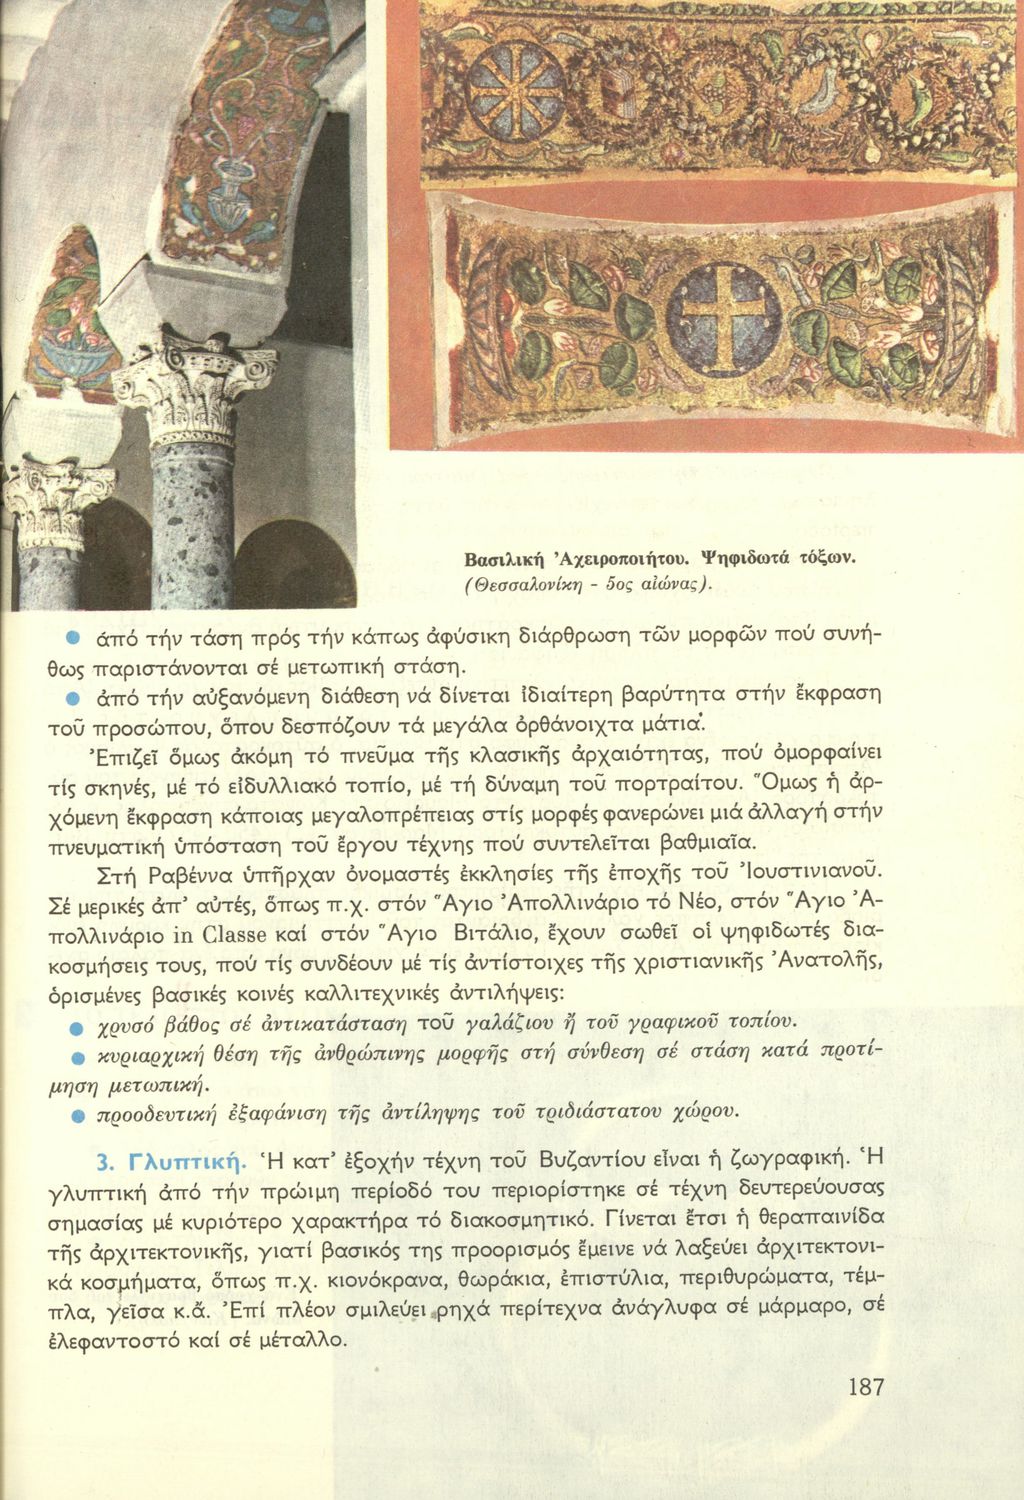 Βασιλική Ἀχειροποιήτου. Ψηφιδωτά τόξων.
(Θεσσαλονίκη - 5ος αἰώνας).
● ἀπό τήν τάση πρός τήν κάπως ἀφύσικη διάρθρωση τῶν μορφῶν πού συνή-
θως παριστάνονται σέ μετωπική στάση.
● ἀπό τήν αὐξανόμενη διάθεση νά δίνεται ἰδιαίτερη βαρύτητα στήν ἔκφραση
τοῦ προσώπου, ὅπου δεσπόζουν τά μεγάλα ὀρθάνοιχτα μάτια.
Ἐπιζεῖ ὅμως ἀκόμη τό πνεῦμα τῆς κλασικῆς ἀρχαιότητας, πού ὀμορφαίνει
τίς σκηνές, μέ τό εἰδυλλιακό τοπίο, μέ τή δύναμη τοῦ πορτραίτου. Ὅμως ἡ ἀρ-
χόμενη ἔκφραση κάποιας μεγαλοπρέπειας στίς μορφές φανερώνει μιά ἀλλαγή στήν
πνευματική ὑπόσταση τοῦ ἔργου τέχνης πού συντελεῖται βαθμιαῖα.
Στή Ραβέννα ὑπῆρχαν ὀνομαστές ἐκκλησίες τῆς ἐποχῆς τοῦ Ἰουστινιανοῦ.
Σέ μερικές ἀπ' αὐτές, ὅπως π.χ. στόν Ἅγιο Ἀπολλινάριο τό Νέο, στόν Ἅγιο Ἀ-
πολλινάριο in Classe καί στόν Ἅγιο Βιτάλιο, ἔχουν σωθεῖ οἱ ψηφιδωτές δια-
κοσμήσεις τους, πού τίς συνδέουν μέ τίς ἀντίστοιχες τῆς χριστιανικῆς Ἀνατολῆς,
ὁρισμένες βασικές κοινές καλλιτεχνικές ἀντιλήψεις:
● χρυσό βάθος σέ ἀντικατάσταση τοῦ γαλάζιου ἤ τοῦ γραφικοῦ τοπίου.
● κυριαρχική θέση τῆς ἀνθρώπινης μορφῆς στή σύνθεση σέ στάση κατά προτί-
μηση μετωπική.
● προοδευτική ἐξαφάνιση τῆς ἀντίληψης τοῦ τριδιάστατου χώρου.
3. Γλυπτική. Ἡ κατ' ἐξοχήν τέχνη τοῦ Βυζαντίου εἶναι ἡ ζωγραφική. Ἡ
γλυπτική ἀπό τήν πρώιμη περίοδό του περιορίστηκε σέ τέχνη δευτερεύουσας
σημασίας μέ κυριότερο χαρακτήρα τό διακοσμητικό. Γίνεται ἔτσι ἡ θεραπαινίδα
τῆς ἀρχιτεκτονικῆς, γιατί βασικός της προορισμός ἔμεινε νά λαξεύει ἀρχιτεκτονι-
κά κοσμήματα, ὅπως π.χ. κιονόκρανα, θωράκια, ἐπιστύλια, περιθυρώματα, τέμ-
πλα, γεῖσα κ.ἄ. Ἐπί πλέον σμιλεύει ρηχά περίτεχνα ἀνάγλυφα σέ μάρμαρο, σέ
ἐλεφαντοστό καί σέ μέταλλο.
187